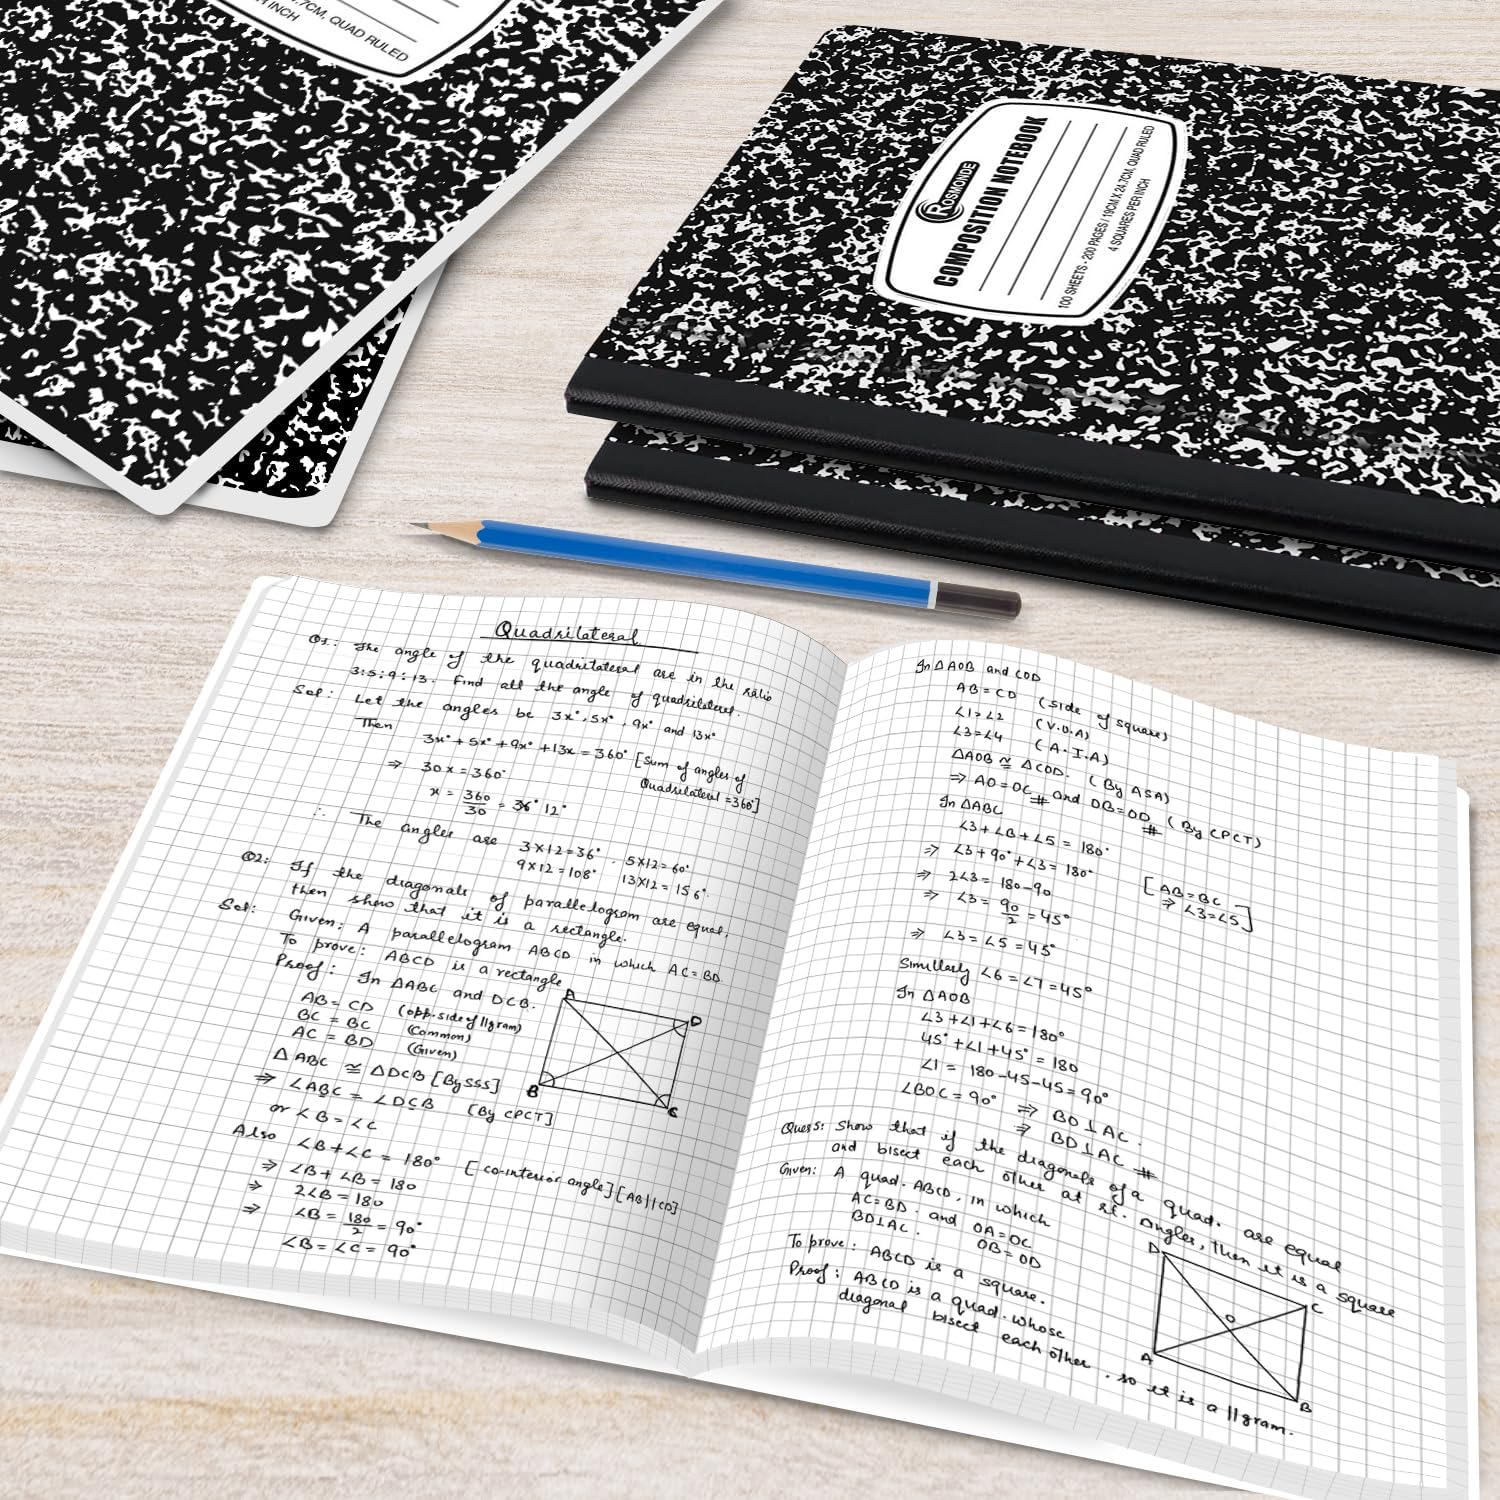 .7CM, QUAD RULED
R INCH
ROSMONDE
COMPOSITION NOTEBOOK
100 SHEETS - 200 PAGES / 19CM X 24.7CM, QUAD RULED
4 SQUARES PER INCH
Quadrilateral
Q1: The angle of the quadrilateral are in the ratio
3:5:9:13. Find all the angle of quadrilateral.
Sol: Let the angles be 3x°, 5x°, 9x° and 13x°
Then
3x° + 5x° + 9x° + 13x = 360° [Sum of angles of
Quadrilateral = 360°]
⇒ 30x = 360°
x = 360/30 = 36° 12°
∴ The angles are 3×12=36°. 5×12=60°
9×12=108° 13×12=156°.
Q2: If the diagonals of parallelogram are equal,
then show that it is a rectangle.
Sol: Given: A parallelogram ABCD in which AC=BD.
To prove: ABCD is a rectangle
Proof: In ΔABC and DCB.
AB = CD (opp. side of ||gram)
BC = BC (Common)
AC = BD (Given)
Δ ABC ≅ ΔDCB [By SSS]
⇒ ∠ABC = ∠DCB (By CPCT]
or ∠B = ∠C
Also ∠B+∠C = 180° [co-interior angle] [AB||CD]
⇒ ∠B+ ∠B = 180
⇒ 2∠B = 180
⇒ ∠B = 180/2 = 90°
∠B = ∠C = 90°
A
D
B
C
In Δ AOB and COD
AB = CD (Side of square)
∠1=∠2 (V.O.A)
∠3=∠4 (A.I.A)
ΔAOB ≅ ΔCOD. (By ASA)
⇒ AO=OC # and OB=OD # (By CPCT)
In ΔABC
∠3+∠B+∠5 = 180°
⇒ ∠3+90°+∠3 = 180° [AB=BC
⇒ ∠3=∠5]
⇒ 2∠3= 180-90
⇒ ∠3= 90/2 = 45°
⇒ ∠3=∠5=45°
Simillarly ∠6=∠7=45°
In ΔAOB
∠3+∠1+∠6=180°
45°+∠1+45° = 180
∠1 = 180-45-45=90°
∠BOC=90° ⇒ BO⊥AC.
⇒ BD⊥AC #
Ques 5: Show that if the diagonals of a quad. are equal
and bisect each other at rt. angles, then it is a square
Given: A quad. ABCD, in which
AC=BD. and OA=OC
BD⊥AC. OB=OD
To prove: ABCD is a square.
Proof: ABCD is a quad. whose
diagonal bisect each other. so it is a ||gram.
D
C
O
A
B